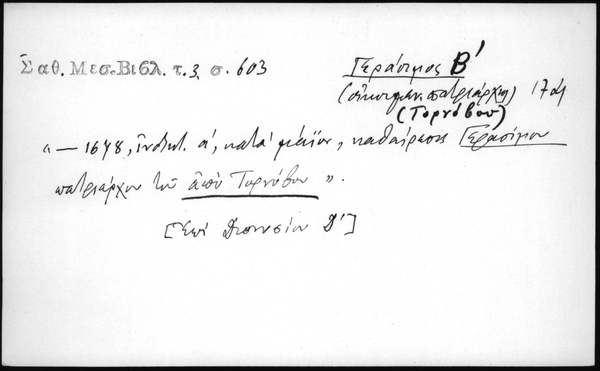 Σαθ. Μεσ. Βιβλ. τ. 3 σ. 603
Γεράσιμος Β΄
(οἰκουμεν. πατριάρχης) 17 αἰ
(Τορνόβου)
« — 1678, ἰνδικτ. α΄, κατὰ μάϊον, καθαίρεσις Γερασίμου
πατριάρχου τοῦ ἀπὸ Τορνόβου ».
[Ἐπὶ Διονυσίου Δ΄]